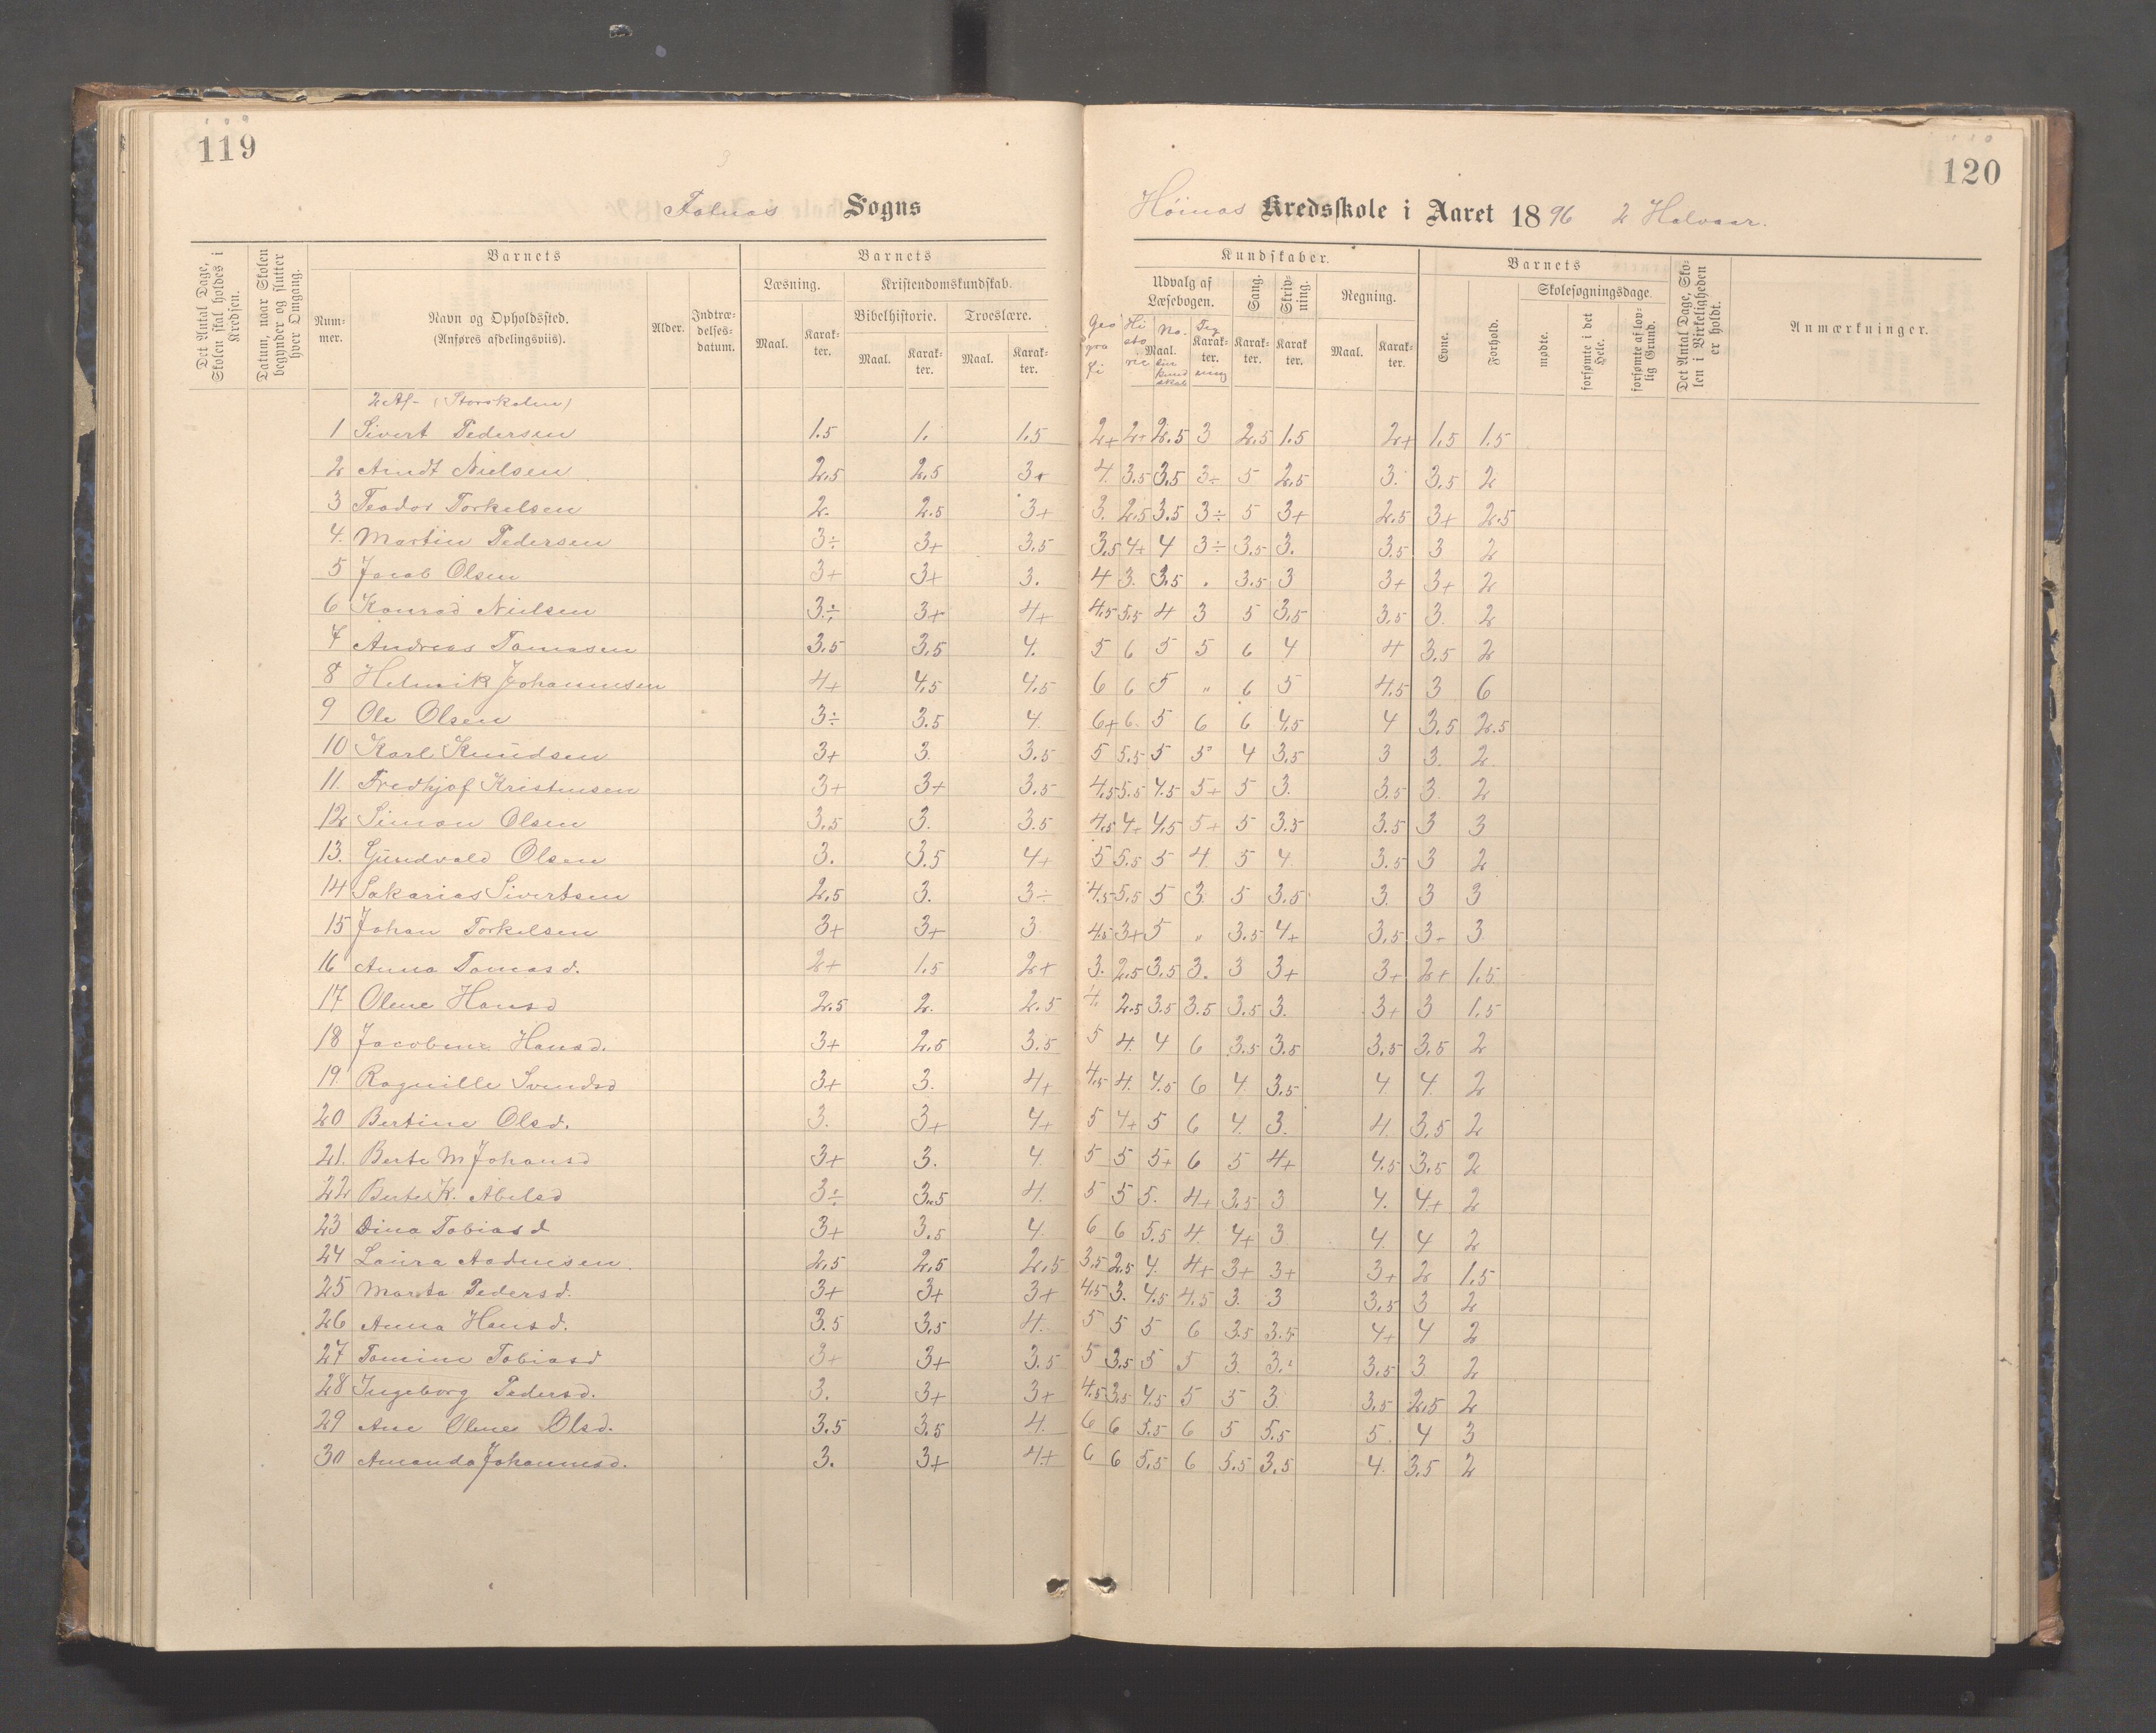 119
120
Falnæs Sogns
Höinæs Kredsskole i Aaret 1896 2 Halvaar.
Det Antal Dage, Skolen skal holdes i Kredsen.
Datum, naar Skolen begynder og slutter hver Omgang.
Barnets
Nummer.
Navn og Opholdssted.
(Anføres afdelingsviis).
Alder.
Indtrædelsesdatum.
Barnets
Læsning.
Maal.
Karakter.
Kristendomskundskab.
Bibelhistorie.
Maal.
Karakter.
Troeslære.
Maal.
Karakter.
Kundskaber.
Udvalg af Læsebogen.
Geografi
Historie
Maal.
Karakter.
Sang.
Karakter.
Skrivning.
Karakter
Regning.
Maal.
Karakter.
Barnets
Evne.
Forhold.
Skolesøgningsdage.
mødte.
forsømte i det Hele.
forsømte af lovlig Grund.
Det Antal Dage, Skolen i Virkeligheden er holdt.
Anmærkninger.
2 Af- (Storskolen)
1 Sivert Pedersen 1.5 1. 1.5 2+ 2+ 2.5 3 2.5 1.5 2+ 1.5 1.5
2 Arndt Nielsen 2.5 2.5 3+ 4. 3.5 3.5 3÷ 5 2.5 3. 3.5 2
3 Teodor Torkelsen 2. 2.5 3+ 3. 2.5 3.5 3÷ 5 3+ 2.5 3+ 2.5
4. Martin Pedersen 3÷ 3+ 3.5 3.5 4+ 4 3÷ 3.5 3. 3.5 3 2
5 Jacob Olsen 3+ 3+ 3. 4 3. 3.5 . 3.5 3 3+ 3+ 2
6 Konrad Nielsen 3÷ 3+ 4+ 4.5 5.5 4 3 5 3.5 3.5 3. 2
7 Andreas Tomasen 3.5 3.5 4. 5 6 5 5 6 4 4 3.5 2
8 Helmik Johannesen 4+ 4.5 4.5 6 6 5 " 6 5 4.5 3 6
9 Ole Olsen 3÷ 3.5 4. 6+ 6. 5 6 6 4.5 4 3.5 2.5
10 Karl Knudsen 3+ 3. 3.5 5 5.5 5 5 4 3.5 3 3. 2
11. Fredhjof Kristensen 3+ 3+ 3.5 4.5 5.5 4.5 5+ 5 3. 3.5 3. 2
12 Simon Olsen 3.5 3. 3.5 4.5 4+ 4.5 5+ 5 3.5 3.5 3 3
13. Gundvald Olsen 3. 3.5 4+ 5 5.5 5 4. 5 4. 3.5 3 2
14 Sakarias Sivertsen 2.5 3. 3÷ 4.5 5.5 5 3. 5 3.5 3. 3 3
15 Johan Torkelsen 3+ 3+ 3 4.5 3+ 5 " 3.5 4+ 3.5 3- 3
16 Anna Tomasd. 2+ 1.5 2+ 3. 2.5 3.5 3. 3 3+ 3+ 2+ 1.5
17 Olene Hansd 2.5 2. 2.5 4. 2.5 3.5 3.5 3.5 3. 3+ 3 1.5
18 Jacobine Hansd. 3+ 2.5 3.5 5 4. 4 6 3.5 3.5 3.5 3.5 2
19. Ragnille Svendsd 3+ 3. 4+ 4.5 4. 4.5 6 4 3.5 4 4. 2
20 Bertine Olsd. 3. 3+ 4+ 5 4+ 5 6 4. 3. 4. 3.5 2
21. Berte M Johansd 3+ 3. 4. 5 5 5+ 6 5 4+ 4.5 3.5 2
22 Berte K. Abelsd 3÷ 3.5 4. 5 5 5. 4+ 3.5 3 4. 4+ 2
23 Dina Tobiasd 3+ 3.5 4. 6 6 5.5 4. 4+ 3 4. 4 2
24 Laura Aadnesen. 2.5 2.5 2.5 3.5 2.5 4. 4+ 3+ 3+ 3+ 2 1.5
25 Marta Pedersd. 3+ 3+ 3+ 4.5 3. 4.5 4.5 3. 3 3.5 3 2
26 Anna Hansd. 3.5 3.5 4. 5 5 5 6 3.5 3.5 4+ 4 2
27 Tomine Tobiasd 3+ 3+ 3.5 5 3.5 5 5 3. 3. 3.5 3. 2
28 Ingeborg Pedersd. 3. 3+ 3+ 4.5 3.5 4.5 5 5 3. 3.5 2.5 2
29 Ane Olene Olsd. 3.5 3.5 4. 6 6 5.5 6 5 5.5 5. 4 3
30 Amanda Johannesd. 3. 3+ 4+ 6 6 5.5 6 5.5 3.5 4. 3.5 2